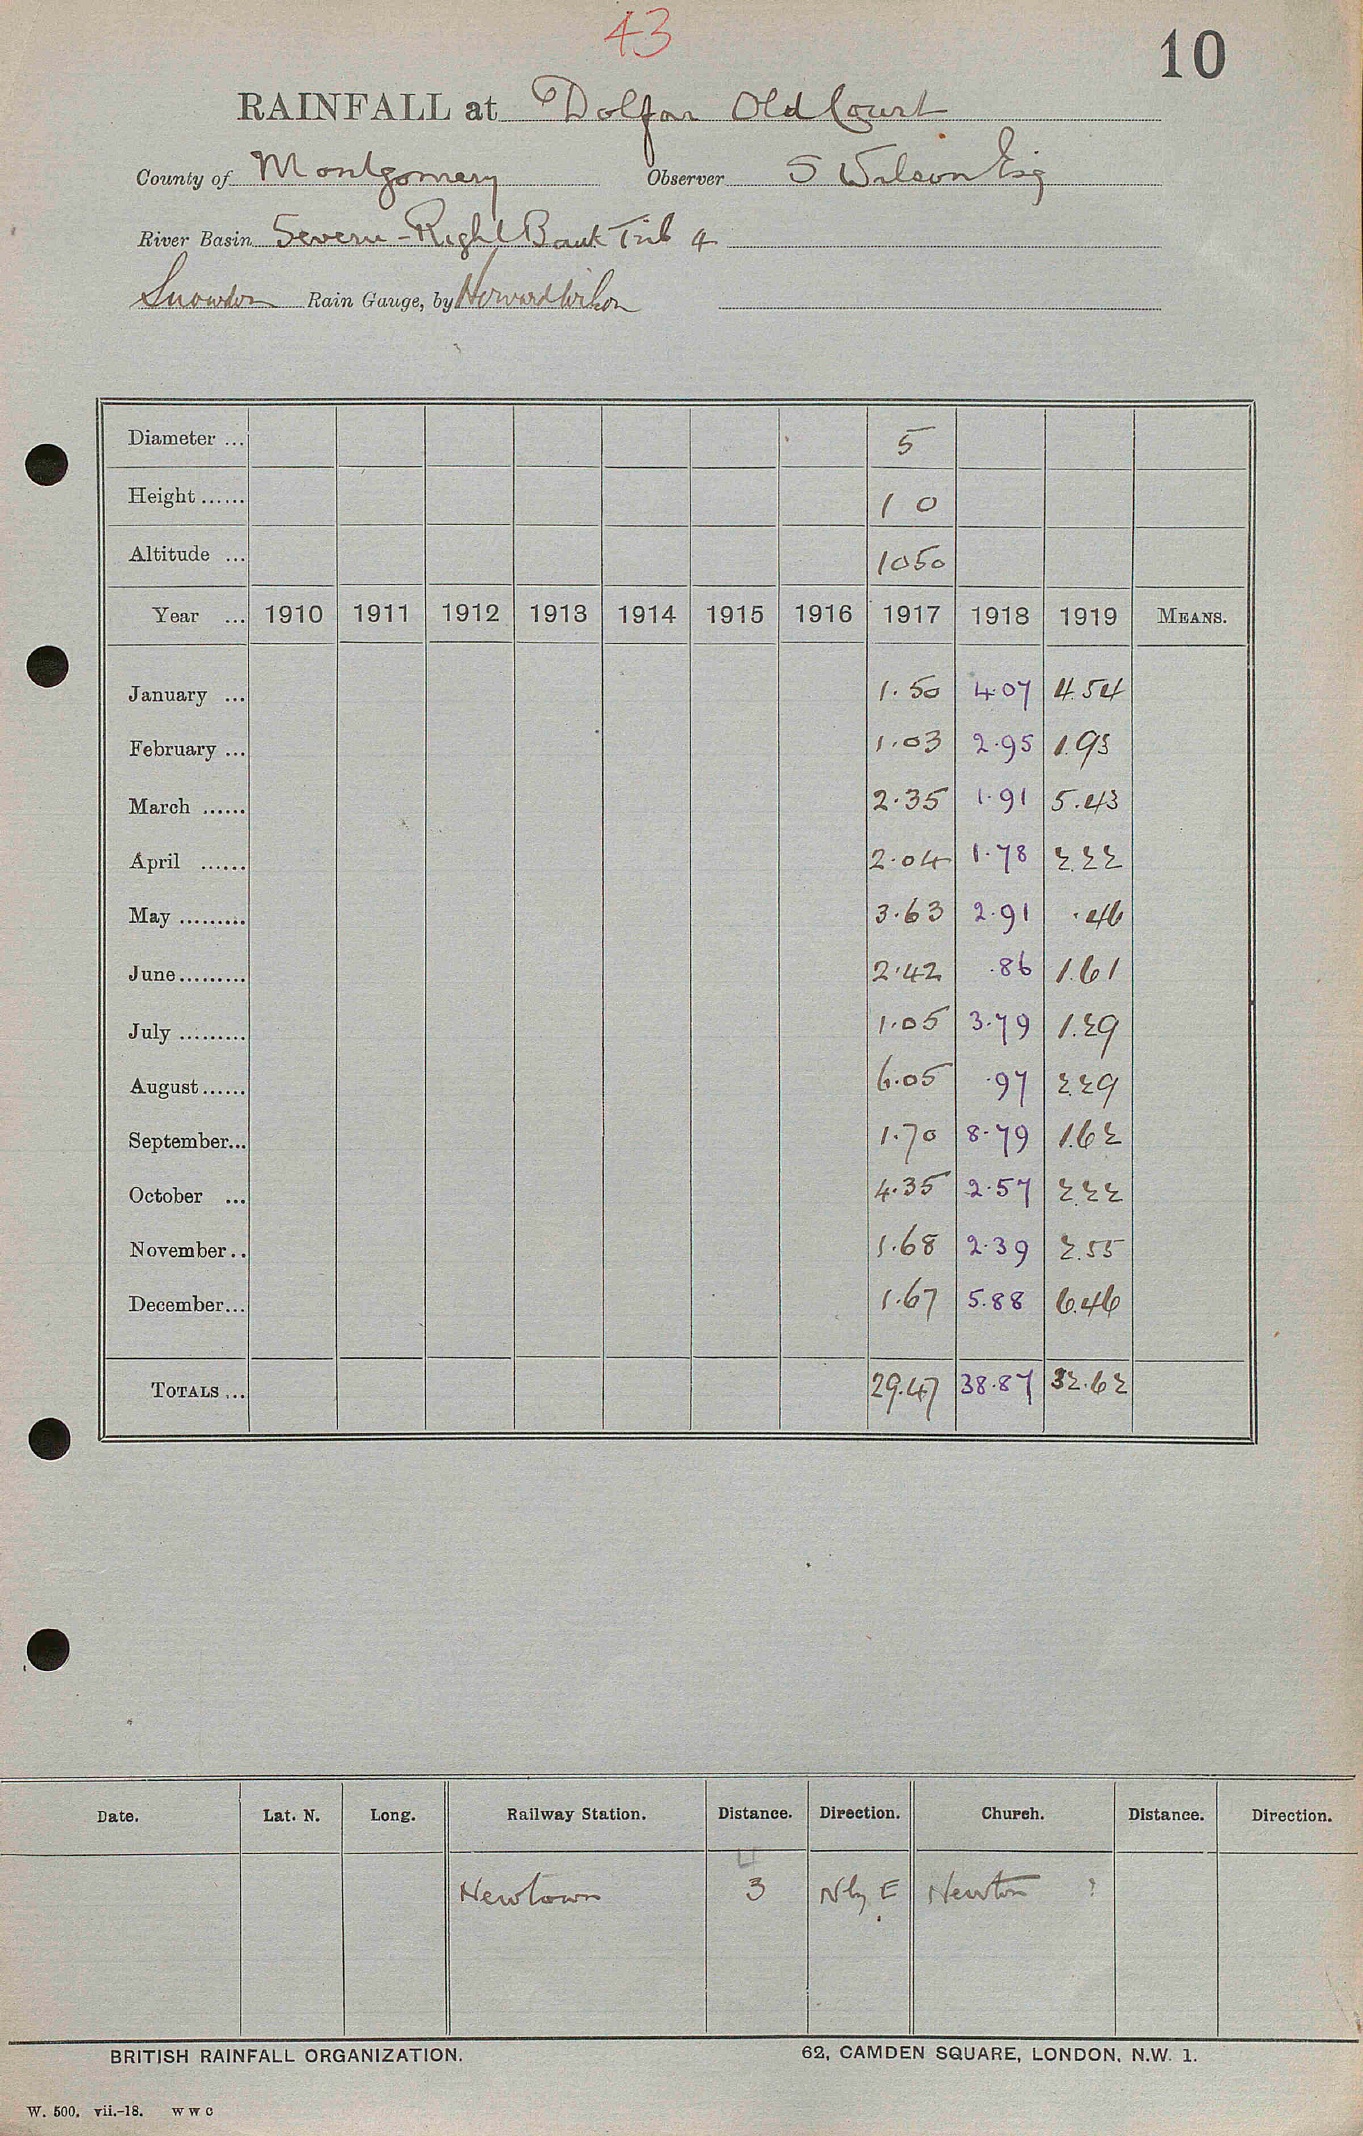 43
10
RAINFALL at Dolfor Old Court
County of Montgomery Observer S Wilson Esq
River Basin Severn - Right Bank Trib 4
Snowdon Rain Gauge, by Howard Wilson
Diameter ... 5
Height ...... 1 0
Altitude ... 1050
Year ... 1910 1911 1912 1913 1914 1915 1916 1917 1918 1919 MEANS.
January ... 1.50 4.07 4.54
February ... 1.03 2.95 1.93
March ...... 2.35 1.91 5.43
April ...... 2.04 1.78 2.22
May ......... 3.63 2.91 .46
June ......... 2.42 .86 1.61
July ......... 1.05 3.79 1.29
August ...... 6.05 .97 2.29
September... 1.70 8.79 1.62
October ... 4.35 2.57 2.22
November.. 1.68 2.39 2.55
December... 1.67 5.88 6.46
TOTALS ... 29.47 38.87 32.62
Date. Lat. N. Long. Railway Station. Distance. Direction. Church. Distance. Direction.
4
Newtown 3 N by E Newton ?
BRITISH RAINFALL ORGANIZATION. 62, CAMDEN SQUARE, LONDON, N.W. 1.
W. 500. vii.-18. W W C